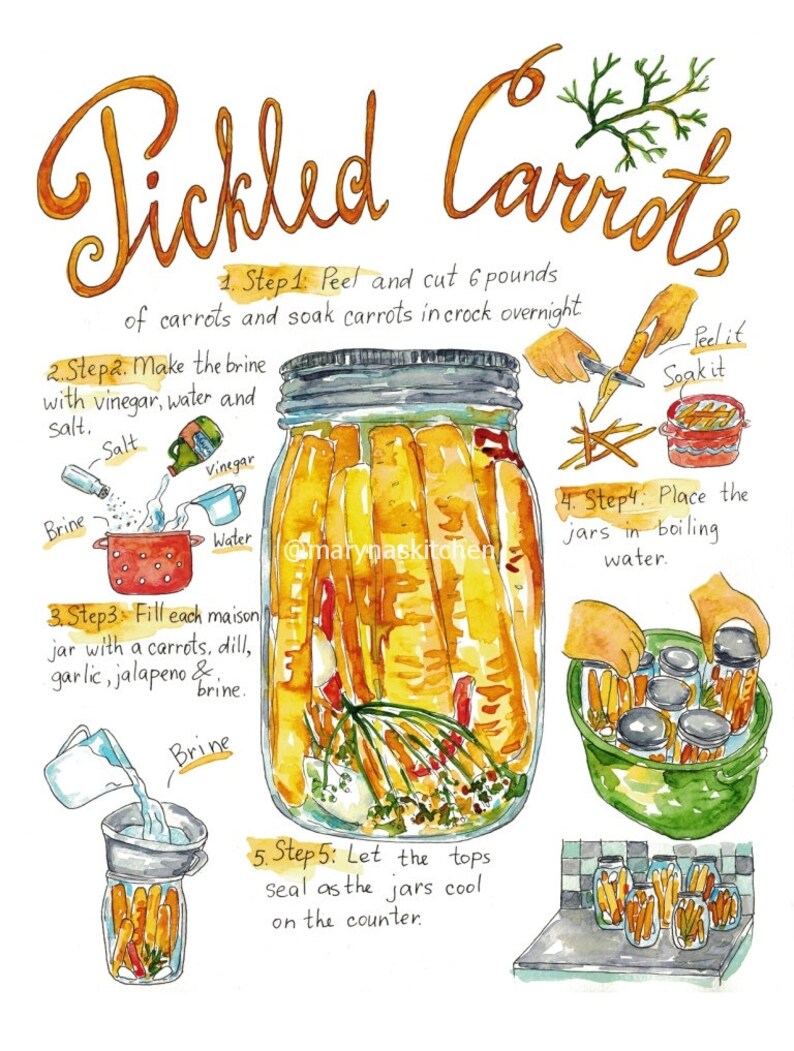 Pickled Carrots
1. Step1: Peel and cut 6 pounds
of carrots and soak carrots in crock overnight.
Peel it
Soak it
2. Step2. Make the brine
with vinegar, water and
salt.
Salt
vinegar
Brine
Water
@marynaskitchen
3. Step3: Fill each maison
jar with a carrots, dill,
garlic, jalapeno &
brine.
Brine
4. Step4: Place the
jars in boiling
water.
5. Step5: Let the tops
seal as the jars cool
on the counter.